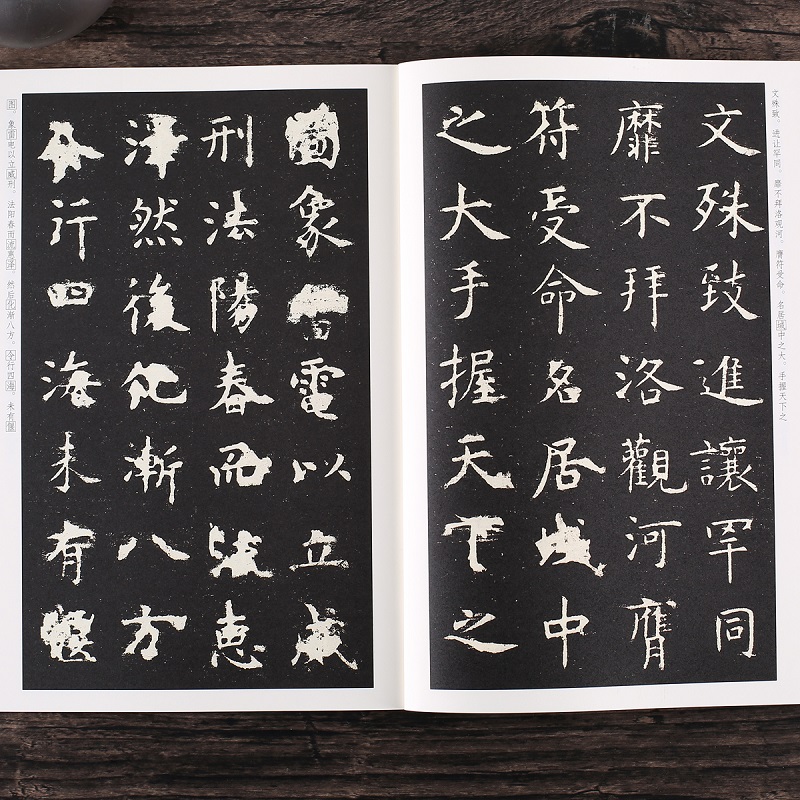 文殊致，进让罕同。靡不拜洛观河，膺符受命，名居域中之大，手握天下之
文殊致進讓罕同
靡不拜洛觀河膺
符受命名居域中
之大手握天下之
圖象雷電以立威
刑法陽春而流恵
澤然後化漸八方
令行四海未有偃
图。象雷电以立威刑，法阳春而流惠泽。然后化渐八方，令行四海。未有偃